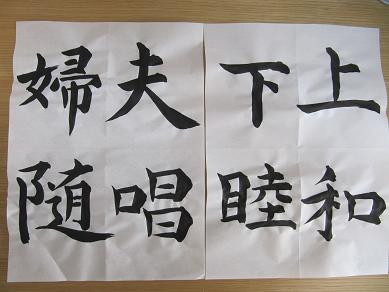 上和
下睦
夫唱
婦随